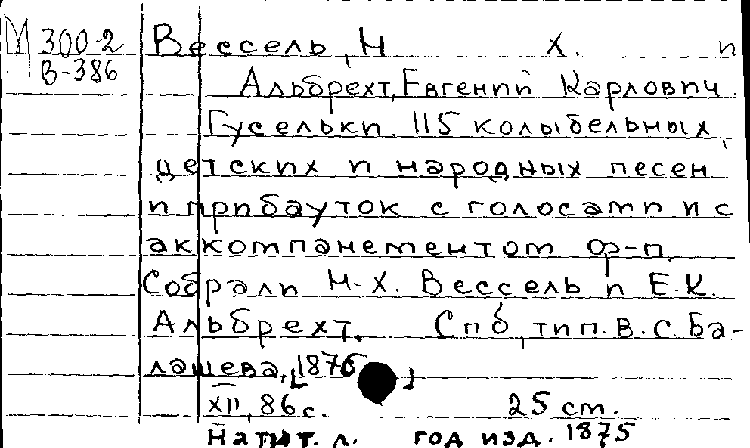 М 300-2 Вессель, Н Х. и
В-386 Альбрехт, Евгений Карлович.
Гусельки. 115 колыбельных,
детских и народных песен
и прибауток с голосами и с
аккомпанементом ф-п.
Собрали Н.Х. Вессель и Е.К.
Альбрехт. Спб, тип. В.С. Ба-
лашева, [1876]
XII, 86 с. 25 cm.
На тит. л. год изд. 1875